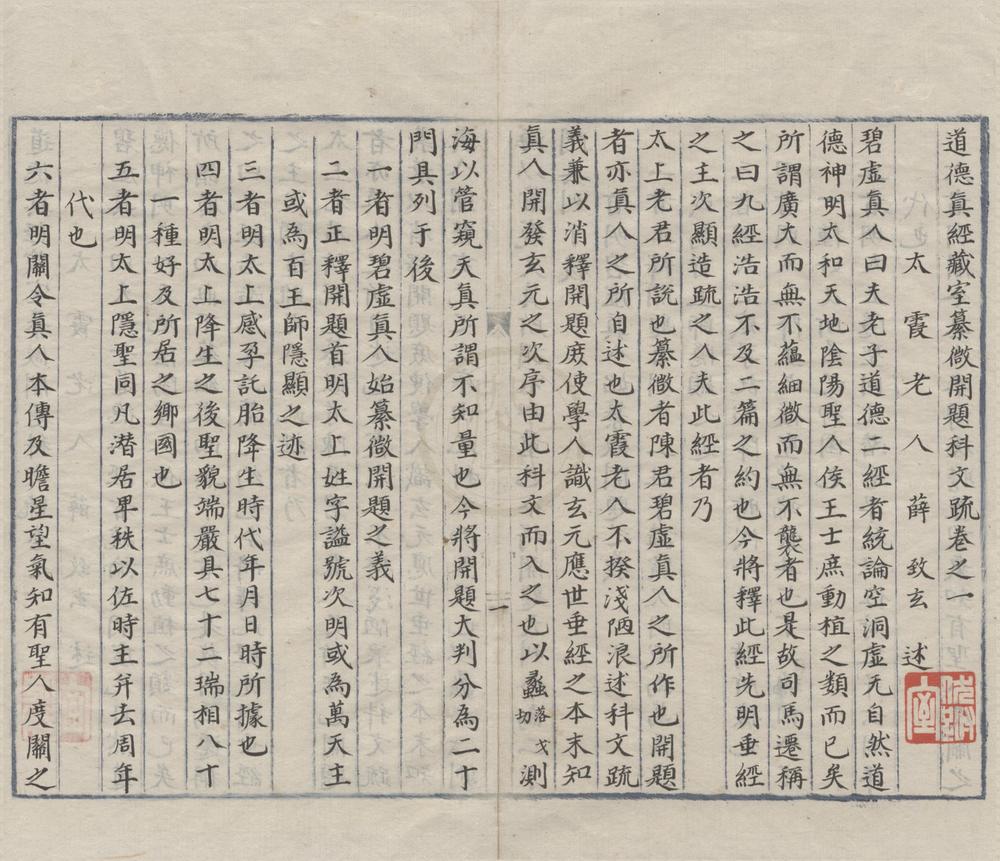 道德真經藏室纂微開題科文疏卷之一
太霞老人薛致玄述
碧虛真人曰夫老子道德二經者統論空洞虛无自然道
德神明太和天地陰陽聖人侯王士庶動植之類而已矣
所謂廣大而無不蘊細微而無不襲者也是故司馬遷稱
之曰九經浩浩不及二篇之約也今將釋此經先明垂經
之主次顯造疏之人夫此經者乃
太上老君所說也纂微者陳君碧虛真人之所作也開題
者亦真人之所自述也太霞老人不揆淺陋浪述科文疏
義兼以消釋開題庻使學人識玄元應世垂經之本末知
真人開發玄元之次序由此科文而入之也以蠡落戈切測
海以管窺天真所謂不知量也今將開題大判分為二十
門具列于後
一者明碧虛真人始纂微開題之義
二者正釋開題首明太上姓字謚號次明或為萬天主
或為百王師隱顯之迹
三者明太上感孕託胎降生時代年月日時所據也
四者明太上降生之後聖貌端嚴具七十二瑞相八十
一種好及所居之鄉國也
五者明太上隱聖同凡潛居卑秩以佐時主并去周年
代也
六者明關令真人本傳及瞻星望氣知有聖人度關之